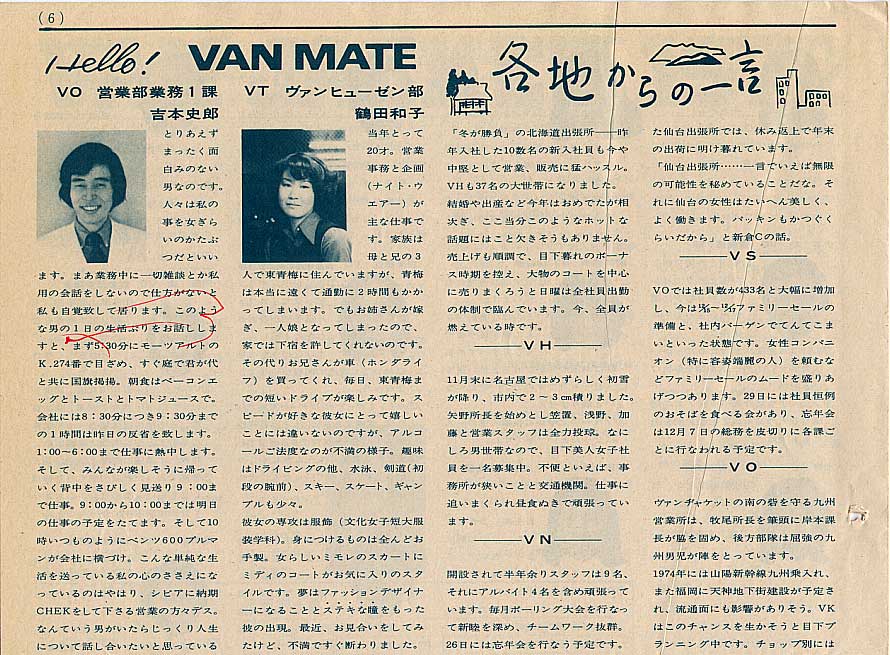 (6)
Hello! VAN MATE
VO 営業部業務1課
吉本史郎
とりあえず
まったく面
白みのない
男なのです。
人々は私の
事を女ぎら
いのかたぶ
つだといい
ます。まあ業務中に一切雑談とか私
用の会話をしないので仕方がないと
私も自覚致して居ります。このよう
な男の1日の生活ぶりをお話ししま
すと、まず5:30分にモーツアルトの
K.274番で目ざめ、すぐ庭で君が代
と共に国旗掲揚。朝食はベーコンエ
ッグとトーストとトマトジュースで。
会社には8:30分につき9:30分まで
の1時間は昨日の反省を致します。
1:00〜6:00まで仕事に熱中します。
そして、みんなが楽しそうに帰って
いく背中をさびしく見送り9:00ま
で仕事。9:00から10:00までは明日
の仕事の予定をたてます。そして10
時いつものようにベンツ600プルマン
が会社に横づけ。こんな単純な生
活を送っている私の心のささえにな
っているのはやはり、シビアに納期
CHEKをして下さる営業の方々デス。
なんていう男がいたらじっくり人生
について話し合いたいと思っている
VT ヴァンヒューゼン部
鶴田和子
当年とって
20才。営業
事務と企画
(ナイト・ウ
エアー)が
主な仕事で
す。家族は
母と兄の3
人で東青梅に住んでいますが、青梅
は本当に遠くて通勤に2時間もかか
ってしまいます。でもお姉さんが嫁
ぎ、一人娘となってしまったので、
家では下宿を許してくれないのです。
その代りお兄さんが車(ホンダライ
フ)を買ってくれ、毎日、東青梅ま
での短いドライブが楽しみです。ス
ピードが好きな彼女にとって嬉しい
ことには違いないのですが、アルコ
ールご法度なのが不満の様子。趣味
はドライビングの他、水泳、剣道(初
段の腕前)、スキー、スケート、ギャン
ブルも少々。
彼女の専攻は服飾(文化女子短大服
装学科)。身につけるものは全んどお
手製。女らしいミモレのスカートに
ミディのコートがお気に入りのスタ
イルです。夢はファッションデザイナ
ーになることとステキな瞳をもった
彼の出現。最近、お見合いをしてみ
たけど、不満ですぐ断わりました。
各地からの一言
「冬が勝負」の北海道出張所——昨
年入社した10数名の新入社員も今や
中堅として営業、販売に猛ハッスル。
VHも37名の大世帯になりました。
結婚や出産など今年はおめでたが相
次ぎ、ここ当分このようなホットな
話題にはこと欠きそうもありません。
売上げも順調で、目下暮れのボーナ
ス時期を控え、大物のコートを中心
に売りまくろうと日曜は全社員出勤
の体制で臨んでいます。今、全員が
燃えている時です。
VH
11月末に名古屋ではめずらしく初雪
が降り、市内で2〜3cm積りました。
矢野所長を始めとし笠置、浅野、加
藤と営業スタッフは全力投球。なに
しろ男世帯なので、目下美人女子社
員を一名募集中。不便といえば、事
務所が狭いことと交通機関。仕事に
追いまくられ昼食ぬきで頑張ってい
ます。
VN
開設されて半年余りスタッフは9名、
それにアルバイト4名を含め頑張って
います。毎月ボーリング大会を行なっ
て新睦を深め、チームワーク抜群。
26日には忘年会を行なう予定です。
た仙台出張所では、休み返上で年末
の出荷に明け暮れています。
「仙台出張所……一言でいえば無限
の可能性を秘めていることだな。そ
れに仙台の女性はたいへん美しく、
よく働きます。パッキンもかつぐく
らいだから」と新倉Cの話。
VS
VOでは社員数が433名と大幅に増加
し、今はファミリーセールの
準備と、社内バーゲンでてんてこま
いといった状態です。女性コンパニ
オン(特に容姿端麗の人)を頼むなど
ファミリーセールのムードを盛りあ
げつつあります。29日には社員恒例
のおそばを食べる会があり、忘年会
は12月7日の総務を皮切りに各課ご
とに行なわれる予定です。
VO
ヴァンヂャケットの南の砦を守る九州
営業所は、牧尾所長を筆頭に岸本課
長が脇を固め、後方部隊は屈強の九
州男児が陣をとっています。
1974年には山陽新幹線九州乗入れ、
また福岡に天神地下街建設が予定さ
れ、流通面にも影響がありそう。VK
はこのチャンスを生かそうと目下プ
ランニング中です。チョップ別には